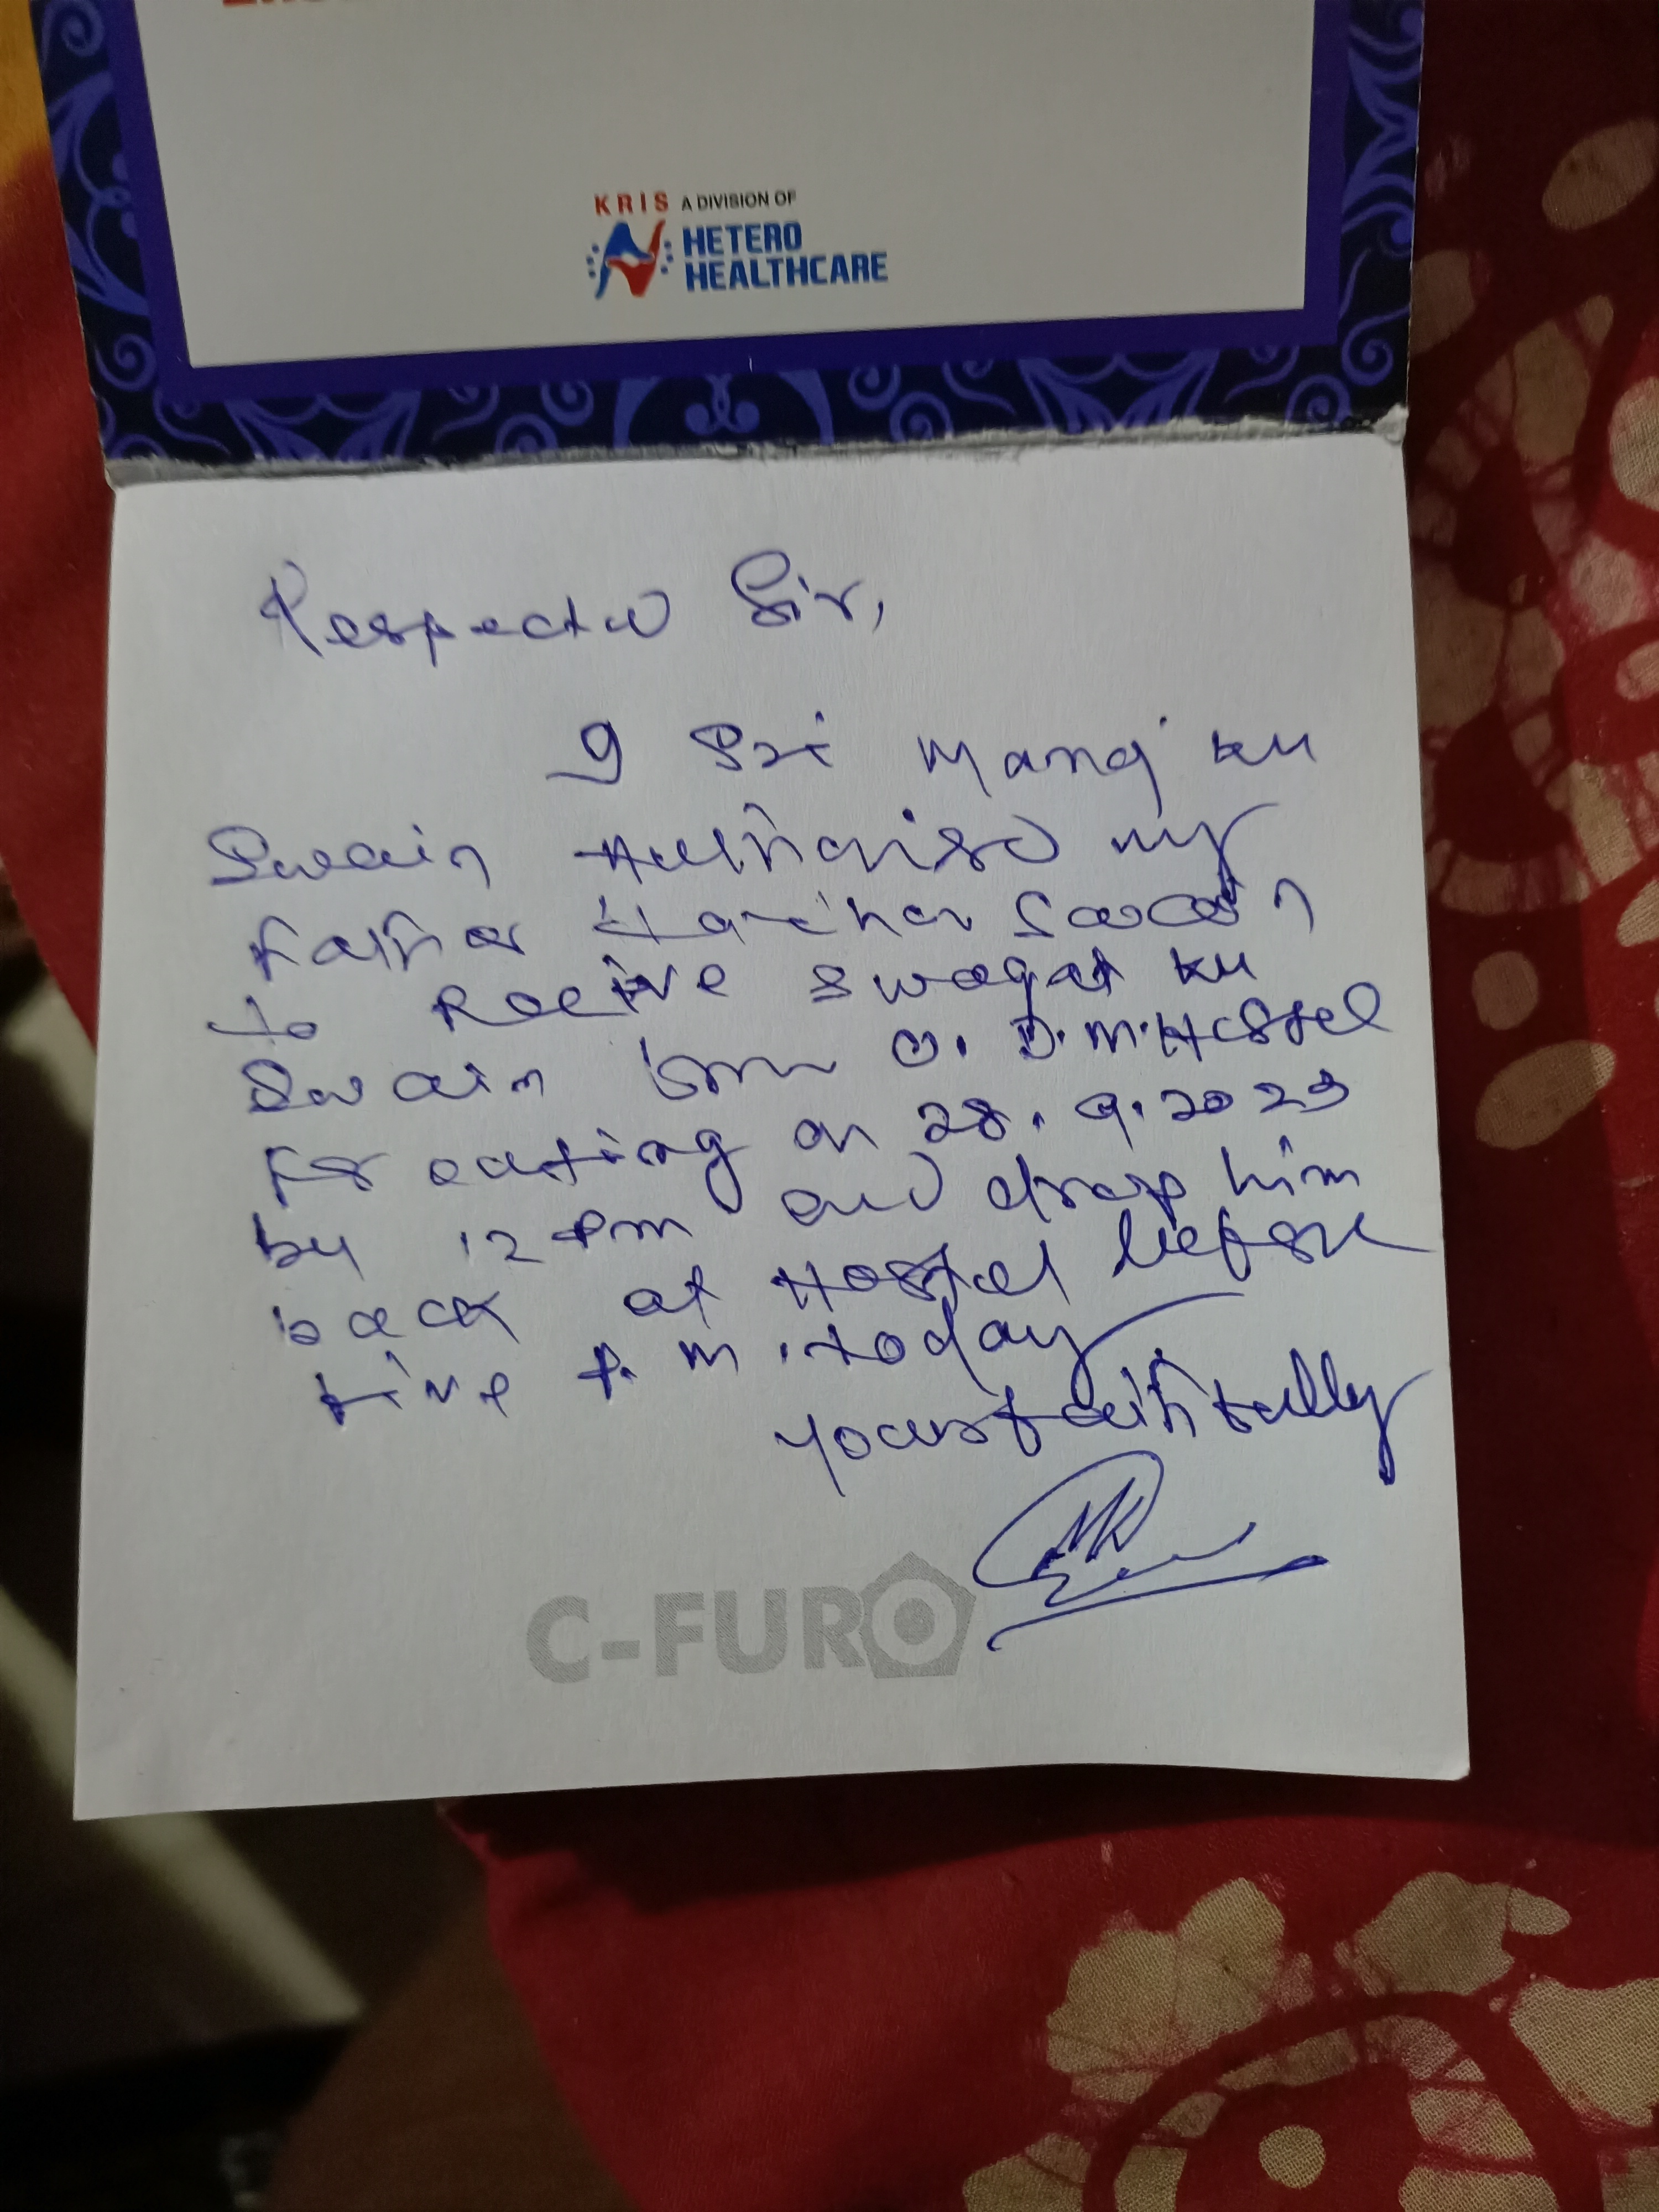 KRIS A DIVISION OF
HETERO
HEALTHCARE
Respected Sir,
I Sri Manoj Ku
Swain Authorised my
Father Swain
to Receive Swagat Ku
Swain from O.D.M. Hostel
For outing on 28.9.2023
by 12 Pm and drop him
back at Hostel before
Five P.M. today
Yours faithfully
C-FURO